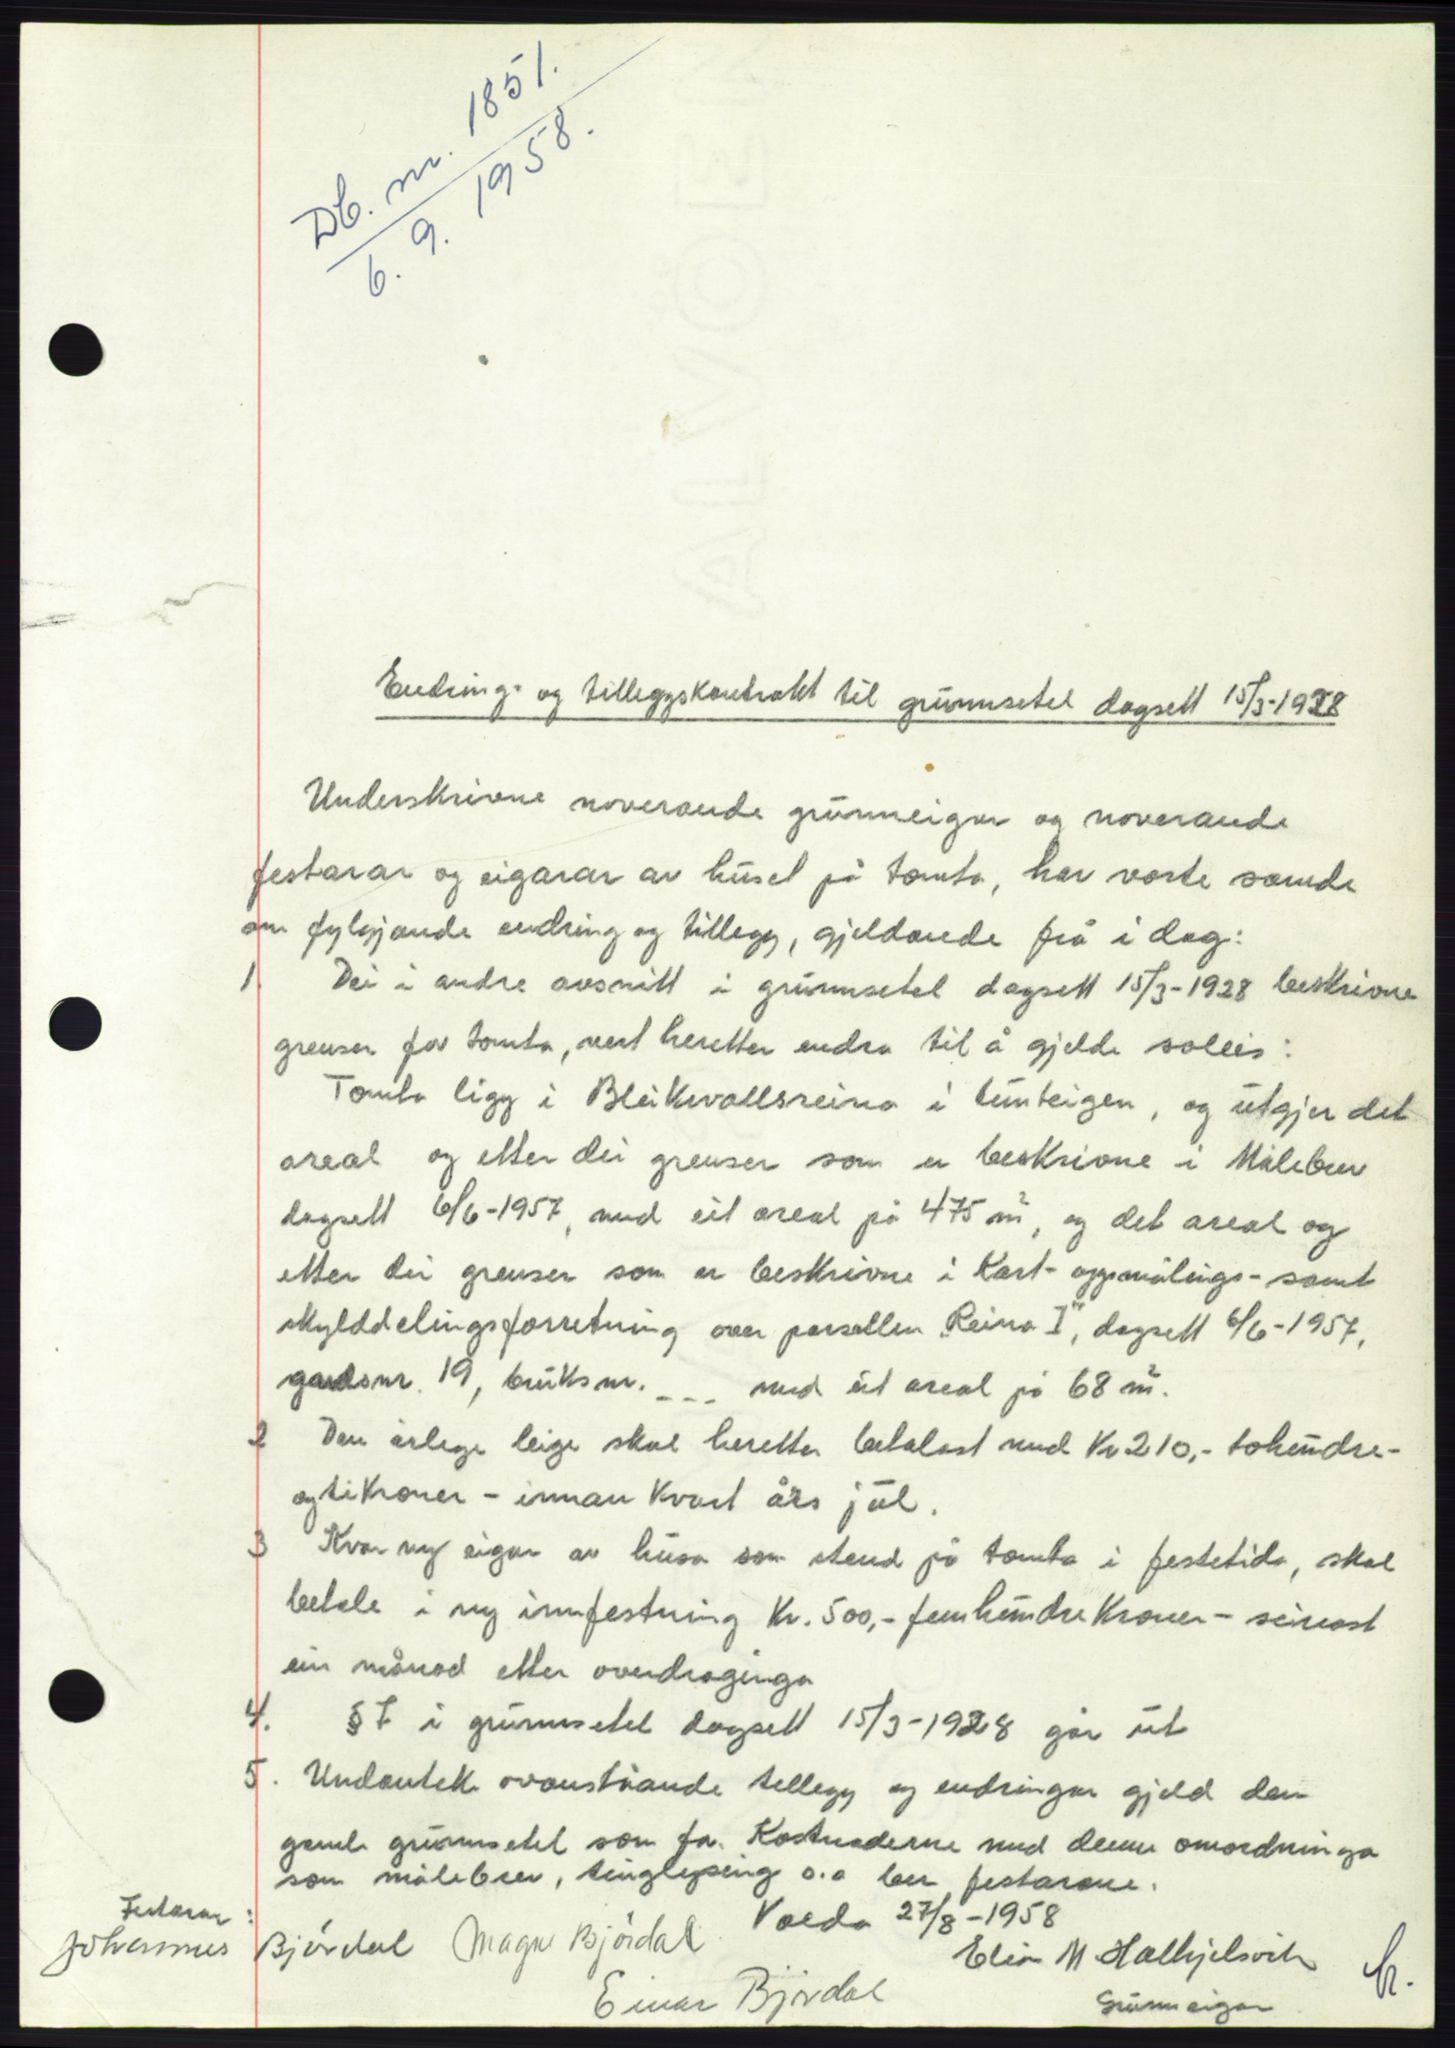 Db. nr. 1851.
6. 9. 1958.
Endring- og tilleggskontrakt til grunnsetel dagsett 15/3-1928
Underskrivne noverande grunneigar og noverande
festarar og eigarar av huset på tomta, har vorte samde
om fylgjande endring og tillegg, gjeldande frå i dag:
1. Dei i andre avsnitt i grunnsetel dagsett 15/3-1928 beskrivne
grenser for tomta, vert heretter endra til å gjelde soleis:
Tomta ligg i Bleikvallsreina i tunteigen, og utgjer det
areal og etter dei grenser som er beskrivne i Målebrev
dagsett 6/6-1957, med eit areal på 475 m², og det areal og
etter dei grenser som er beskrivne i Kart- oppmålings- samt
skylddelingsforretning over parsellen "Reina I", dagsett 6/6-1957,
gardsnr. 19, bruksnr. --- med eit areal på 68 m².
2 Den årlege leige skal heretter betalast med Kr 210,- tohundre-
ogtikroner - innan kvart års jul.
3 Kvar ny eigar av husa som stend på tomta i festetida, skal
betale i ny innfestning Kr. 500,- femhundre kroner - seinast
ein månad etter overdraginga
4. § 7 i grunnsetel dagsett 15/3-1928 går ut
5. Undantek ovanståande tillegg og endringar gjeld den
gamle grunnsetel som før. Kostnaderne med denne omordninga
som målebrev, tinglysing o.a ber festarane.
Volda 27/8-1958
Festarar:
Johannes Bjørdal Magne Bjørdal
Elias M Halkjelsvik
Einar Bjørdal
Grunneigar